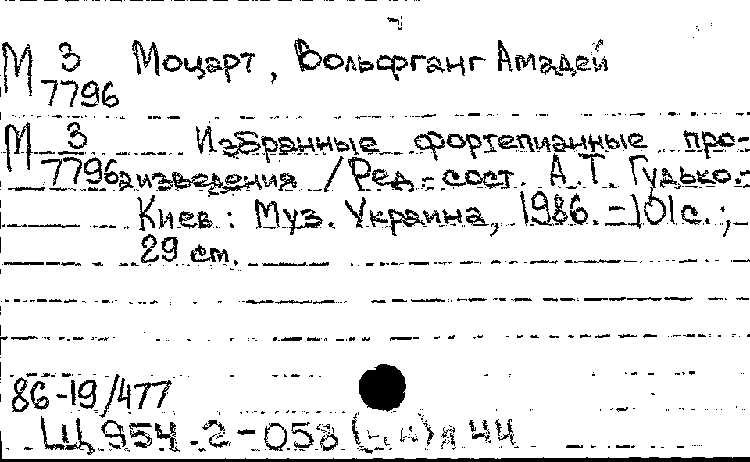 М 3 Моцарт, Вольфганг Амадей
7796
М 3 Избранные фортепианные про-
7796 изведения / Ред.-сост. А.Т. Гудько.-
Киев : Муз. Украина, 1986. - 101 с. ;
29 см.
86-19/477
Щ 954.2-058 я 44